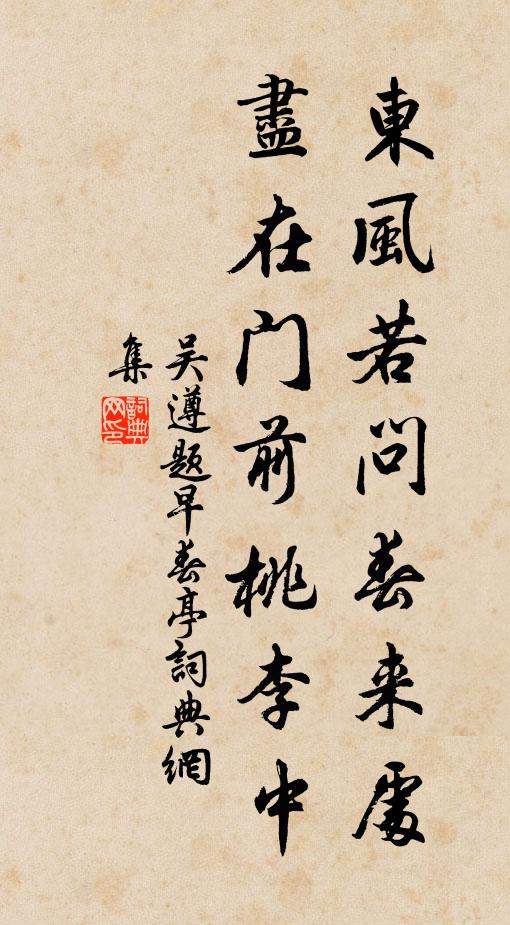 東風若問春来處
盡在門前桃李中
吴遵題早春亭詞典網
集
詞典
网印